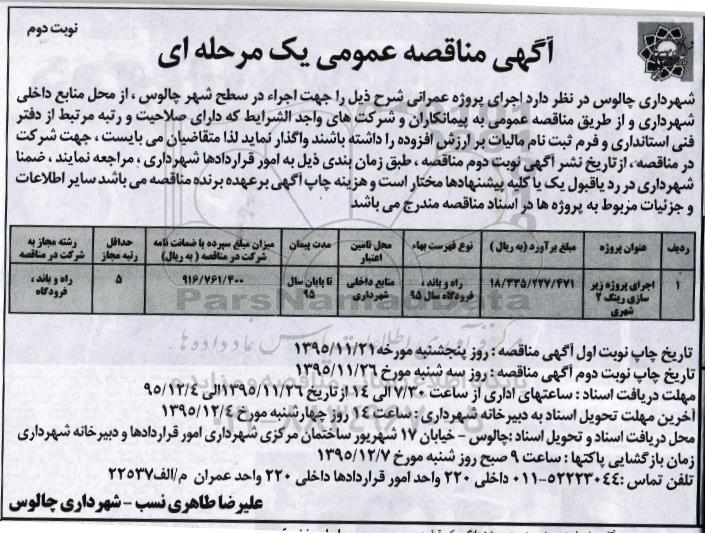 نوبت دوم
آگهی مناقصه عمومی یک مرحله ای
شهرداری چالوس در نظر دارد اجرای پروژه عمرانی شرح ذیل را جهت اجراء در سطح شهر چالوس ، از محل منابع داخلی
شهرداری و از طریق مناقصه عمومی به پیمانکاران و شرکت های واجد الشرایط که دارای صلاحیت و رتبه مرتبط از دفتر
فنی استانداری و فرم ثبت نام مالیات بر ارزش افزوده را داشته باشند واگذار نماید لذا متقاضیان می بایست ، جهت شرکت
در مناقصه ، از تاریخ نشر آگهی نوبت دوم مناقصه ، طبق زمان بندی ذیل به امور قراردادها شهرداری ، مراجعه نمایند ، ضمنا
شهرداری در رد یا قبول یک یا کلیه پیشنهادها مختار است و هزینه چاپ آگهی بر عهده برنده مناقصه می باشد سایر اطلاعات
و جزئیات مربوط به پروژه ها در اسناد مناقصه مندرج می باشد
ردیف عنوان پروژه مبلغ برآورد (به ریال ) نوع فهرست بهاء محل تامین اعتبار مدت پیمان میزان مبلغ سپرده یا ضمانت نامه شرکت در مناقصه ( به ریال) حداقل رتبه مجاز رشته مجاز به شرکت در مناقصه
۱ اجرای پروژه زیر سازی رینگ ۲ شهری ۱۸/۳۳۵/۲۲۷/۴۷۱ راه و باند ، فرودگاه سال ۹۵ منابع داخلی شهرداری تا پایان سال ۹۵ ۹۱۶/۷۶۱/۴۰۰ ۵ راه و باند ، فرودگاه
ParsNamadData
تاریخ چاپ نوبت اول آگهی مناقصه : روز پنجشنبه مورخه ۱۳۹۵/۱۱/۲۱
تاریخ چاپ نوبت دوم آگهی مناقصه : روز سه شنبه مورخ ۱۳۹۵/۱۱/۲۶
مهلت دریافت اسناد : ساعتهای اداری از ساعت ۷/۳۰ الی ۱۴ از تاریخ ۱۳۹۵/۱۱/۲۶ الی ۹۵/۱۲/۴
آخرین مهلت تحویل اسناد به دبیرخانه شهرداری : ساعت ۱۴ روز چهارشنبه مورخ ۱۳۹۵/۱۲/۴
محل دریافت اسناد و تحویل اسناد :چالوس - خیابان ۱۷ شهریور ساختمان مرکزی شهرداری امور قراردادها و دبیرخانه شهرداری
زمان بازگشایی پاکتها : ساعت ۹ صبح روز شنبه مورخ ۱۳۹۵/۱۲/۷
تلفن تماس : ۵۲۲۲۳۰۴۴-۰۱۱ داخلی ۲۲۰ واحد امور قراردادها داخلی ۲۲۰ واحد عمران م/الف ۲۲۵۳۷
علیرضا طاهری نسب - شهرداری چالوس